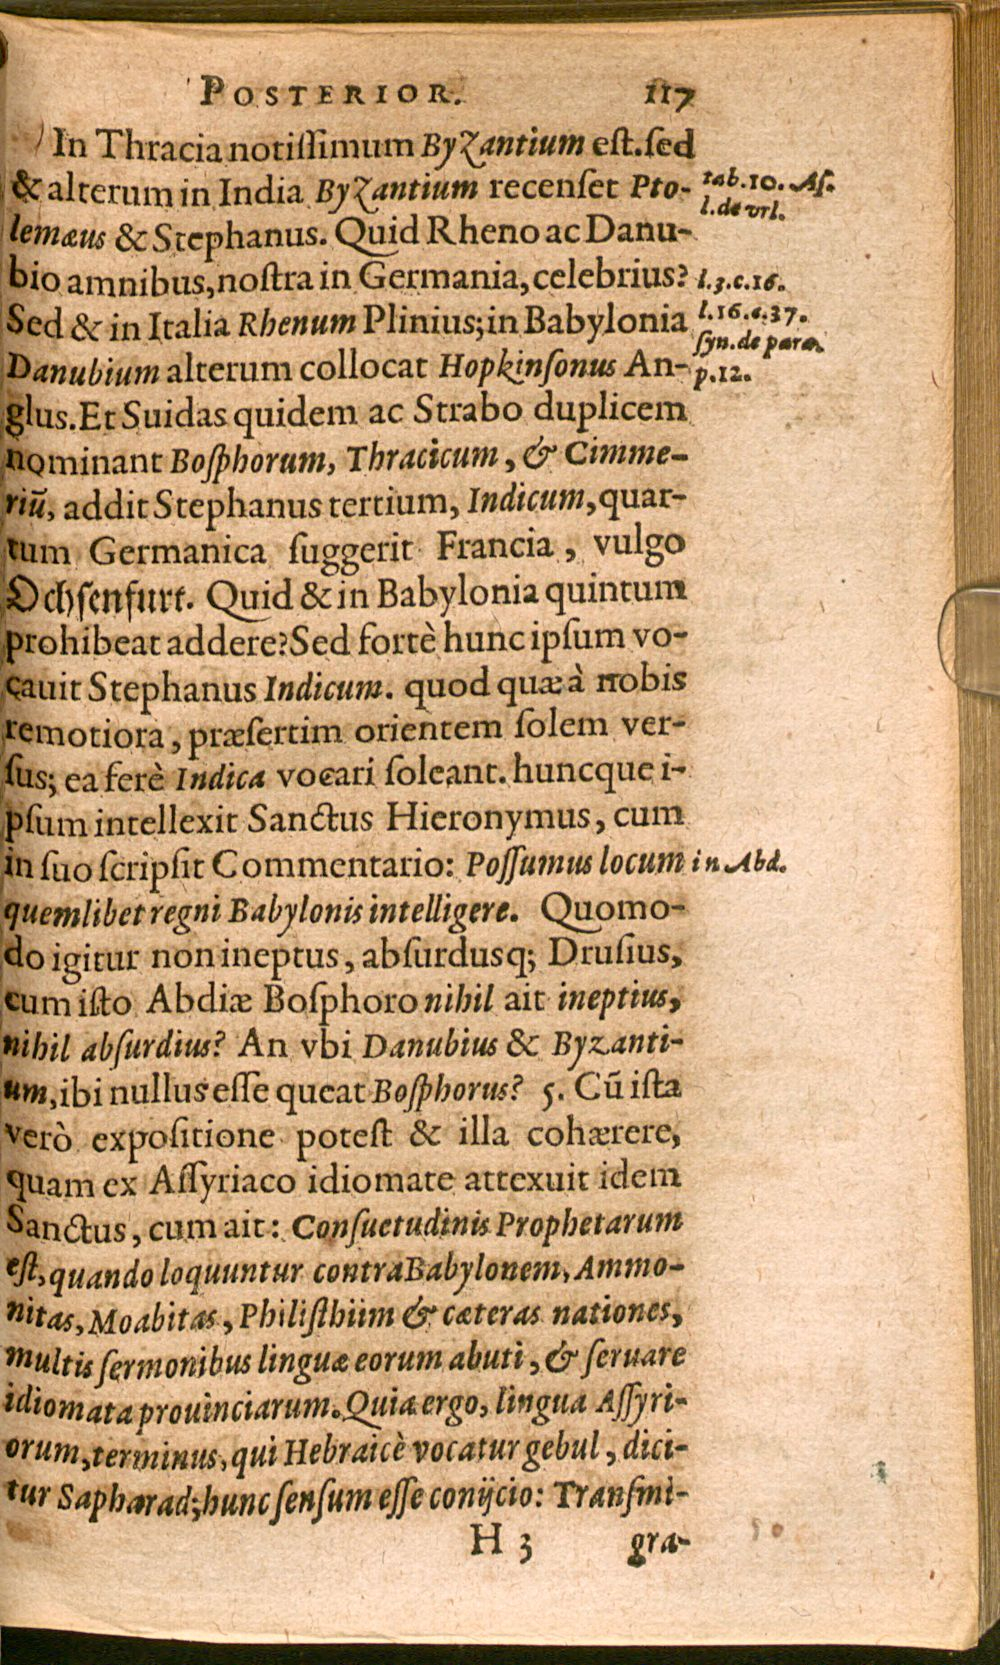 POSTERIOR. 117
In Thracia notiſſimum Byzantium eſt. ſed
& alterum in India Byzantium recenſet Pto-
tab. 10. Aſ.
l. de vrl.
lemæus & Stephanus. Quid Rheno ac Danu-
bio amnibus, noſtra in Germania, celebrius?
l. 3. c. 16.
Sed & in Italia Rhenum Plinius; in Babylonia
l. 16. c. 37.
ſyn. de para.
Danubium alterum collocat Hopkinſonus An-
p. 12.
glus. Et Suidas quidem ac Strabo duplicem
nominant Boſphorum, Thracicum, & Cimme-
riū, addit Stephanus tertium, Indicum, quar-
tum Germanica ſuggerit Francia, vulgo
Ochſenfurt. Quid & in Babylonia quintum
prohibeat addere? Sed fortè hunc ipſum vo-
cauit Stephanus Indicum. quod quæ à nobis
remotiora, præſertim orientem ſolem ver-
ſus; ea ferè Indica vocari ſoleant. huncque i-
pſum intellexit Sanctus Hieronymus, cum
in ſuo ſcripſit Commentario: Poſſumus locum
in Abd.
quemlibet regni Babylonis intelligere. Quomo-
do igitur non ineptus, abſurdusq; Druſius,
cum iſto Abdiæ Boſphoro nihil ait ineptius,
nihil abſurdius? An vbi Danubius & Byzanti-
um, ibi nullus eſſe queat Boſphorus? 5. Cū iſta
verò expoſitione poteſt & illa cohærere,
quam ex Aſſyriaco idiomate attexuit idem
Sanctus, cum ait: Conſuetudinis Prophetarum
eſt, quando loquuntur contra Babylonem, Ammo-
nitas, Moabitas, Philiſthiim & cæteras nationes,
multis ſermonibus linguæ eorum abuti, & ſeruare
idiomata prouinciarum. Quia ergo, lingua Aſſyri-
orum, terminus, qui Hebraicè vocatur gebul, dici-
tur Sapharad; hunc ſenſum eſſe conijcio: Tranſmi-
H 3 gra-